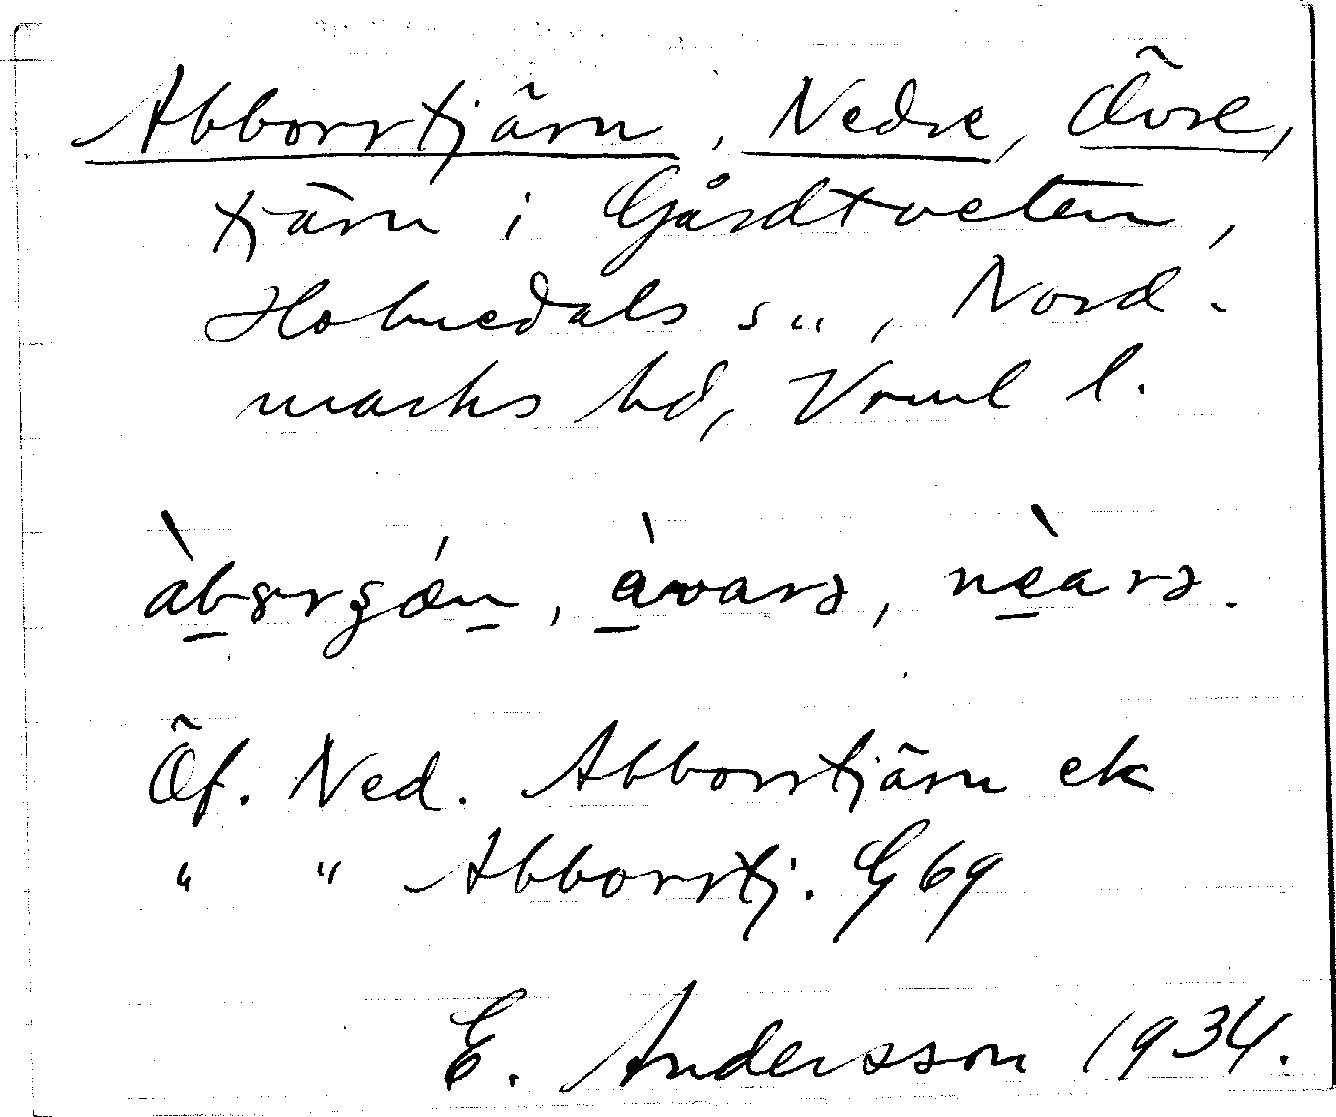 Abborrtjärn, Nedre, Övre,
tjärn i Gårdtveten,
Holmedals sn, Nord-
marks hd, Vrml l.
Öf. Ned. Abborrtjärn ek
" " Abborrtj. G 69
E. Andersson 1934.